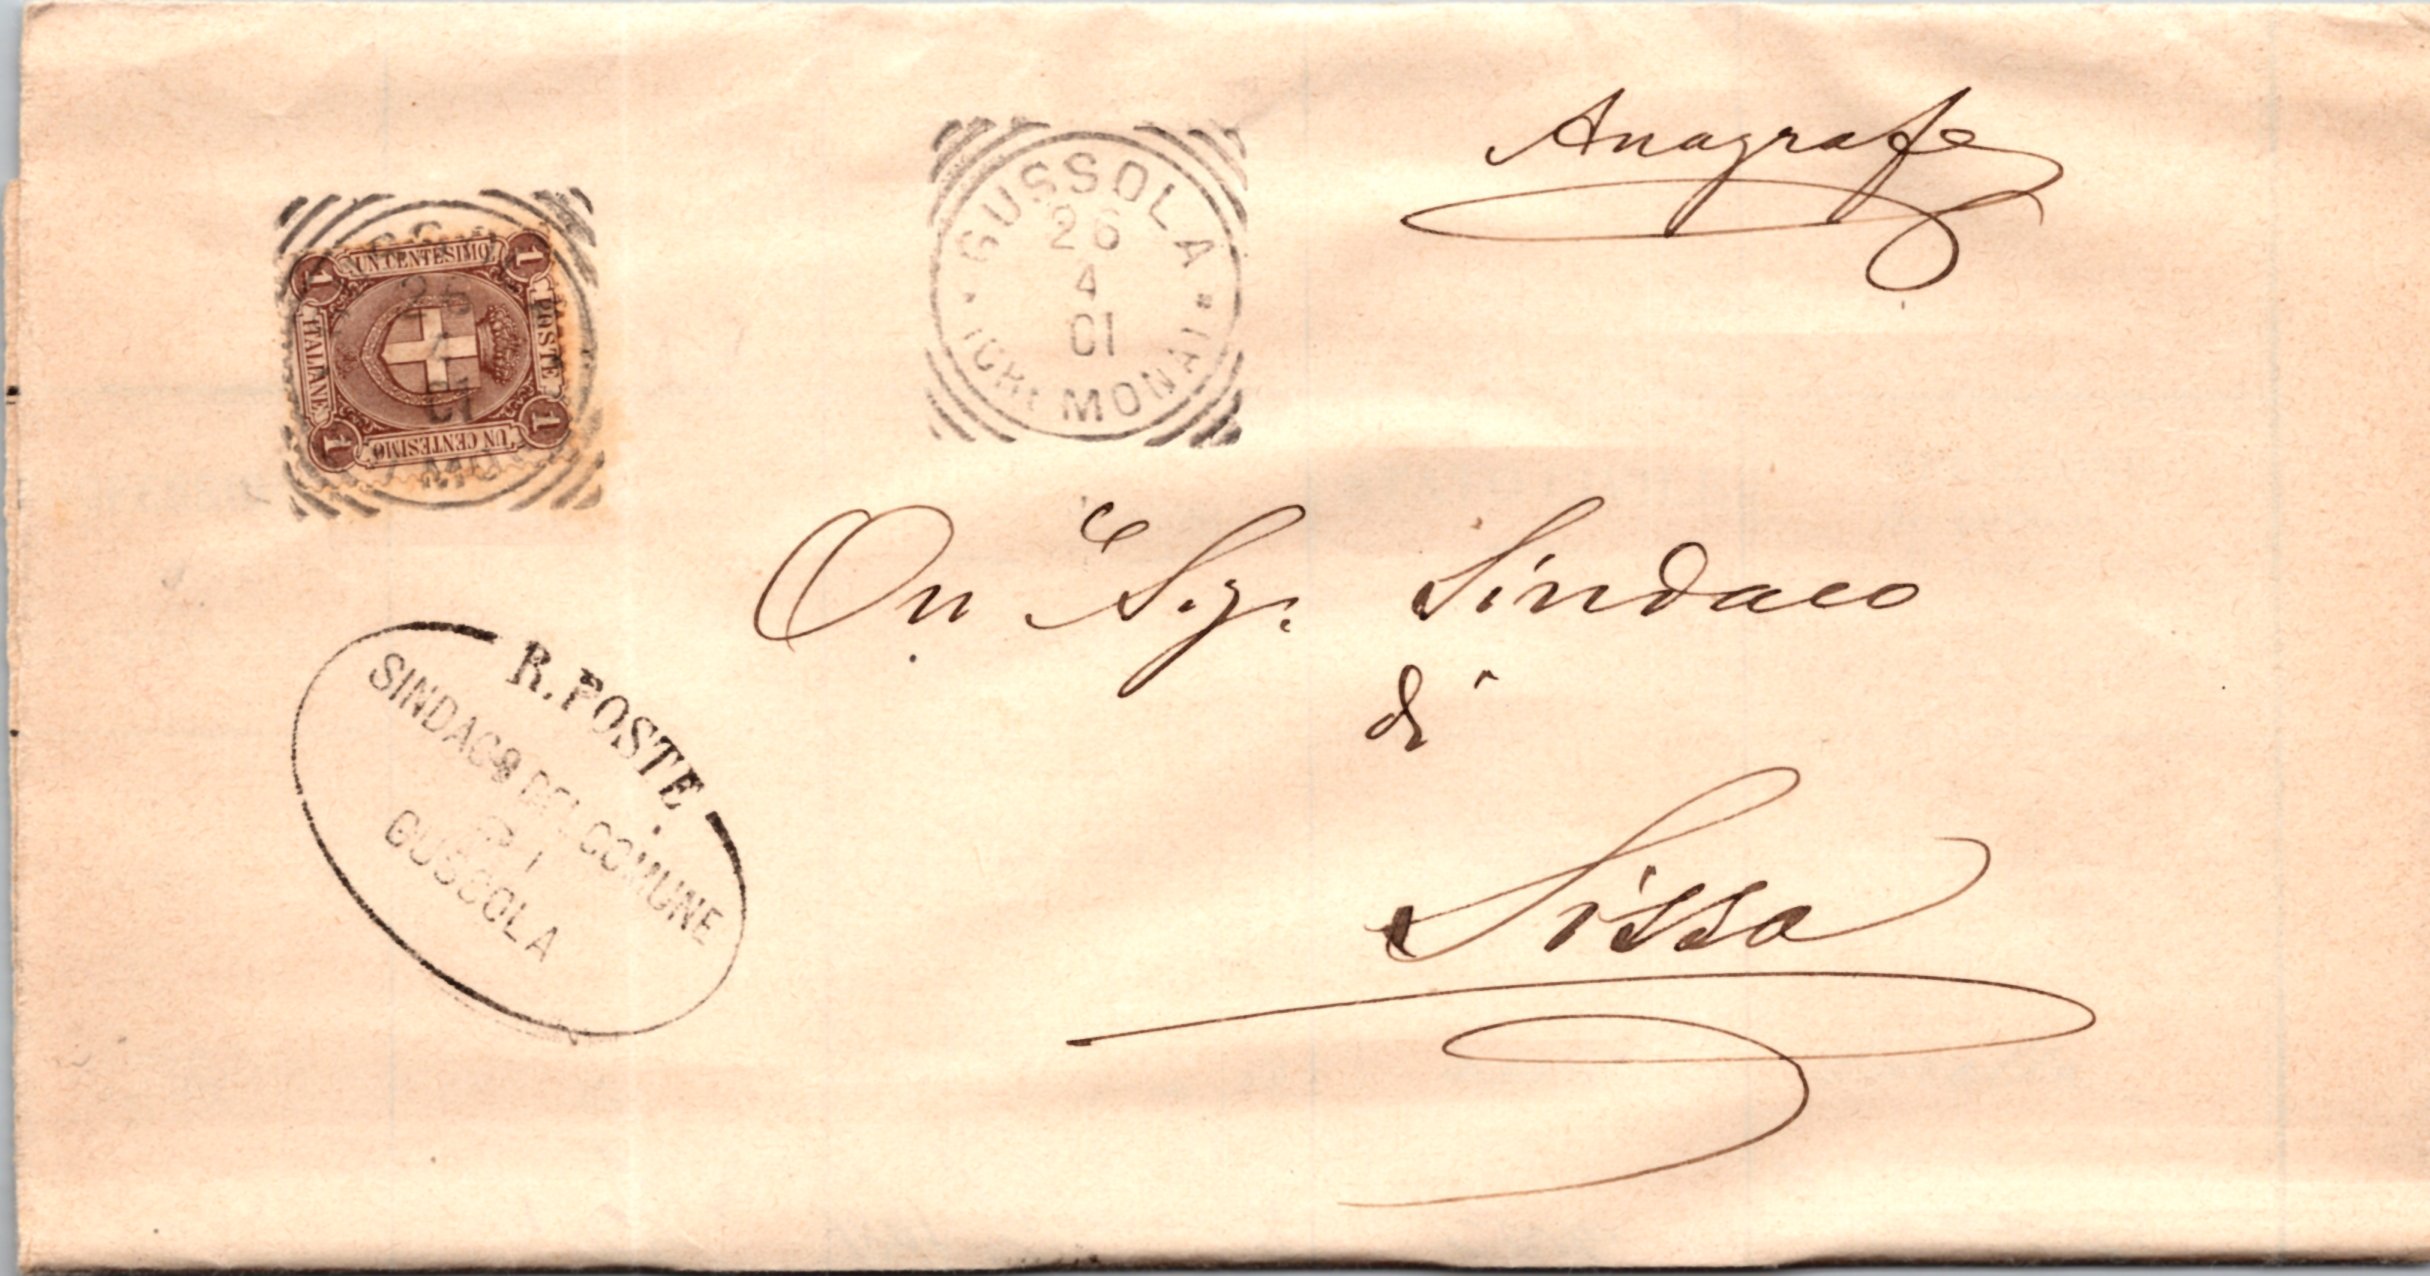 Anagrafe
UN CENTESIMO
POSTE
UN CENTESIMO
ITALIANE
1
1
1
1
26
4
01
GUSSOLA
26
4
01
(CREMONA)
On.le Sig. Sindaco
di
Sissa
R. POSTE
SINDACO DEL COMUNE
DI
GUSSOLA